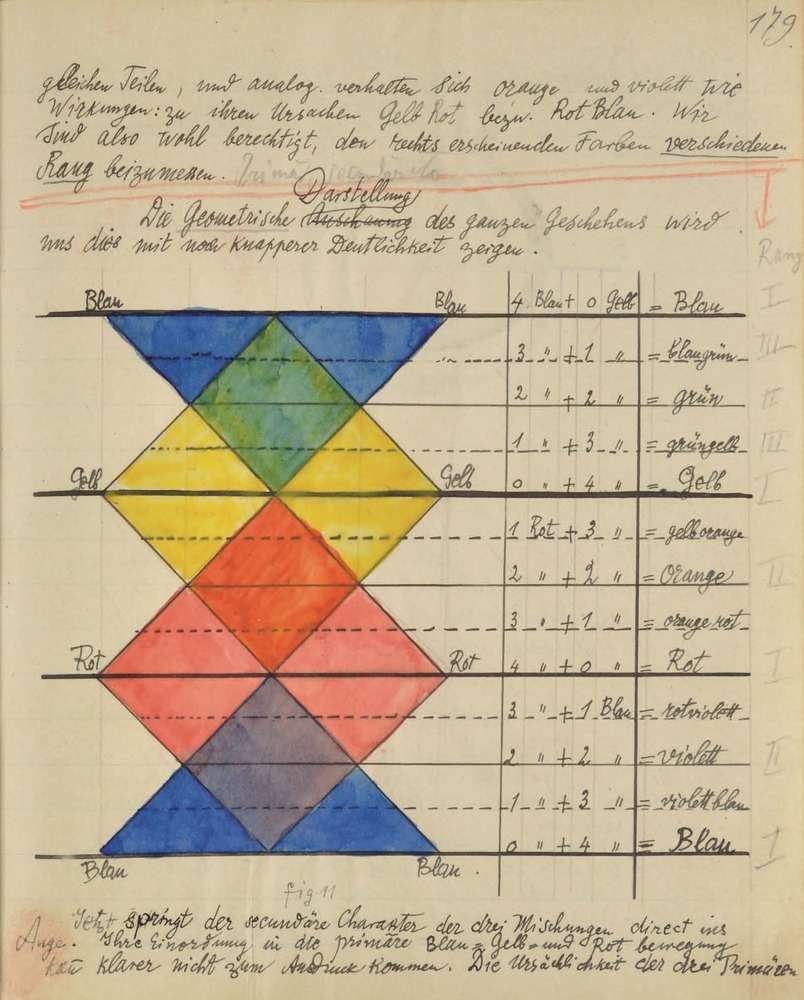 179.
gleichen Teilen, und analog. verhalten sich orange und violett wie
Wirkungen: zu ihren Ursachen Gelb Rot bezw. Rot Blau. Wir
sind also wohl berechtigt, den rechts erscheinenden Farben verschiedenen
Rang beizumessen. Primär
Darstellung
Die Geometrische Anschauung des ganzen Geschehens wird
uns dies mit noch knapperer Deutlichkeit zeigen.
Rang
Blau Blau 4 Blau + 0 Gelb = Blau I
3 " + 1 " = blaugrün III
2 " + 2 " = grün II
1 " + 3 " = grüngelb III
Gelb Gelb 0 " + 4 " = Gelb I
1 Rot + 3 " = gelborange
2 " + 2 " = Orange II
3 " + 1 " = orangerot
Rot Rot 4 " + 0 " = Rot I
3 " + 1 Blau = rotviolett
2 " + 2 " = violett II
1 " + 3 " = violettblau
0 " + 4 " = Blau I
Blau Blau.
fig 11
Jetzt springt der secundäre Charakter der drei Mischungen direct ins
Auge. Ihre Einordnung in die primäre Blau= Gelb= und Rot bewegung
kan klarer nicht zum Ausdruck kommen. Die Ursächlichkeit der drei Primären